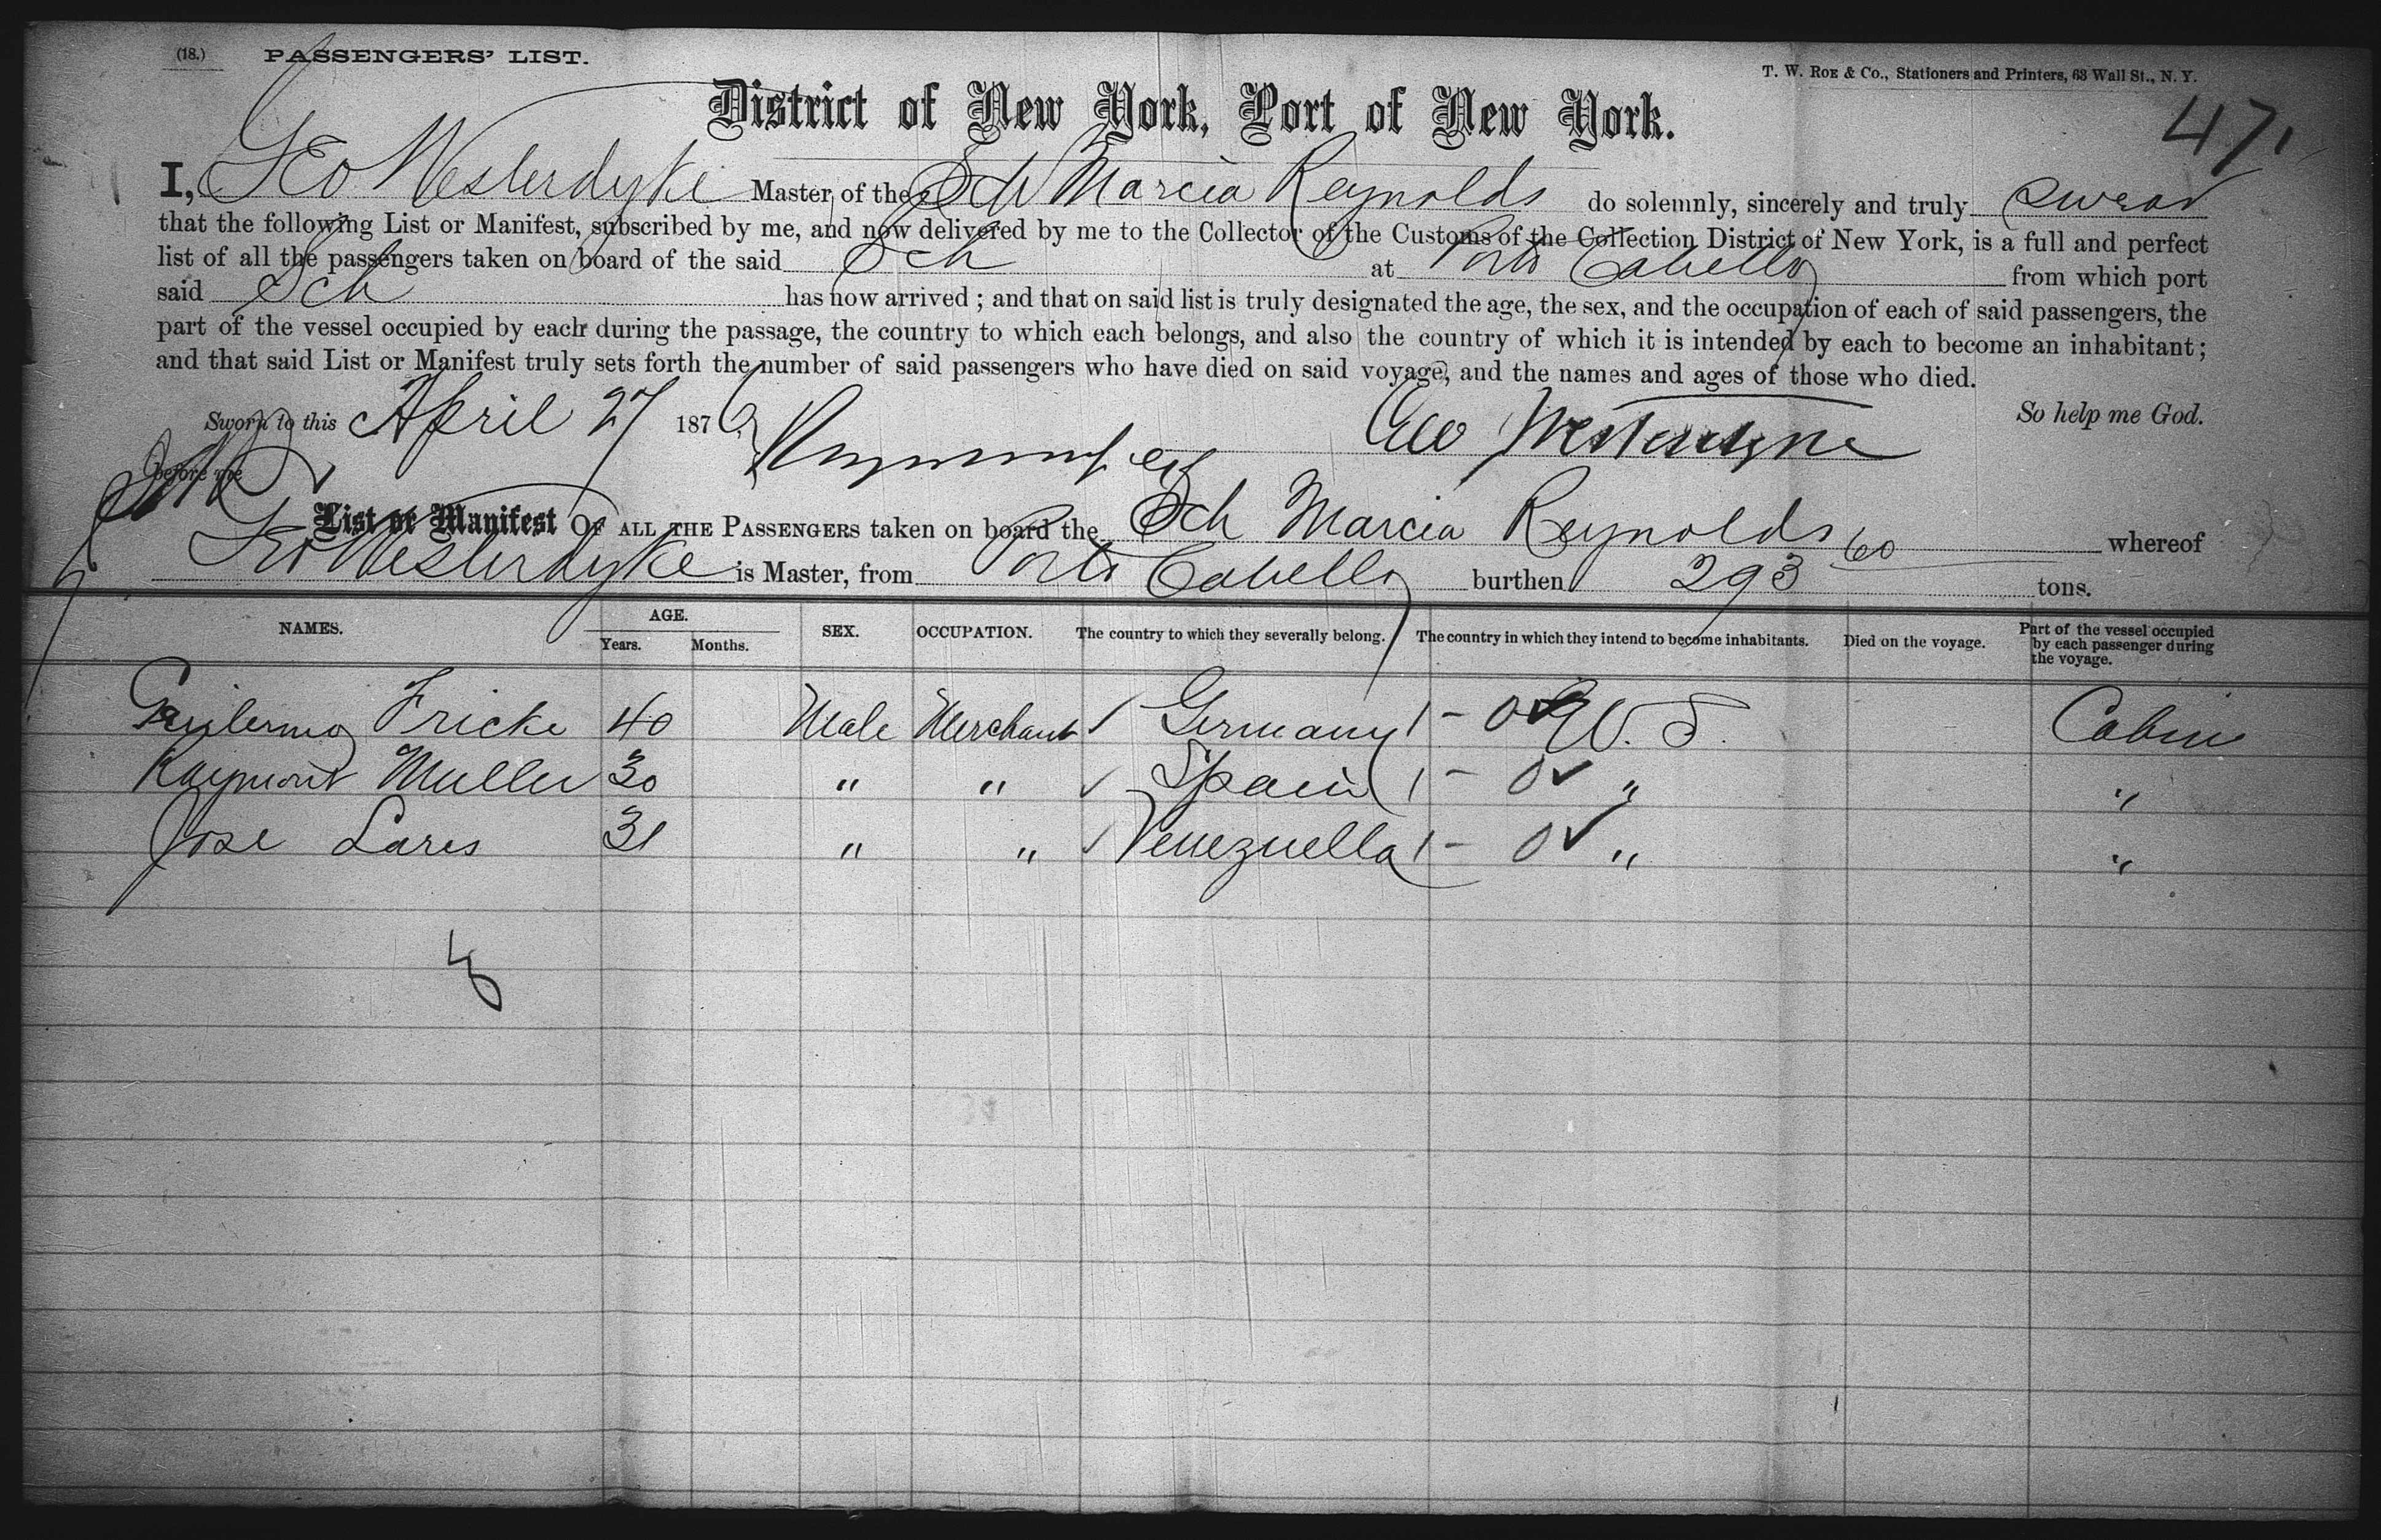 (18.) PASSENGERS' LIST.
T. W. Roe & Co., Stationers and Printers, 63 Wall St., N. Y.
District of New York, Port of New York.
471
I, Geo Westerdyke Master of the Sch Marcia Reynolds do solemnly, sincerely and truly swear
that the following List or Manifest, subscribed by me, and now delivered by me to the Collector of the Customs of the Collection District of New York, is a full and perfect
list of all the passengers taken on board of the said Sch at Porto Cabello from which port
said Sch has now arrived ; and that on said list is truly designated the age, the sex, and the occupation of each of said passengers, the
part of the vessel occupied by each during the passage, the country to which each belongs, and also the country of which it is intended by each to become an inhabitant ;
and that said List or Manifest truly sets forth the number of said passengers who have died on said voyage, and the names and ages of those who died.
So help me God.
Sworn to this April 27 1876
Geo Westerdyke
before me
List or Manifest OF ALL THE PASSENGERS taken on board the Sch Marcia Reynolds whereof
Geo Westerdyke is Master, from Porto Cabello burthen 293 60 tons.
NAMES. AGE. Years. Months. SEX. OCCUPATION. The country to which they severally belong. The country in which they intend to become inhabitants. Died on the voyage. Part of the vessel occupied by each passenger during the voyage.
Guilermo Fricke 40 Male Merchant ✓ Germany 1 - 0 ✓ U. S. Cabin
Raymont Muller 30 " " ✓ Spain 1 - 0 ✓ " "
Jose Lares 31 " " ✓ Venezuella 1 - 0 ✓ " "